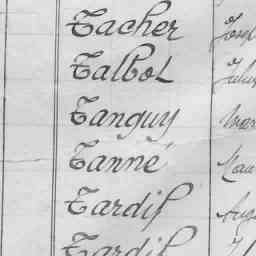 Tacher
Talbot
Tanguy
Tanné
Tardif
Tardif